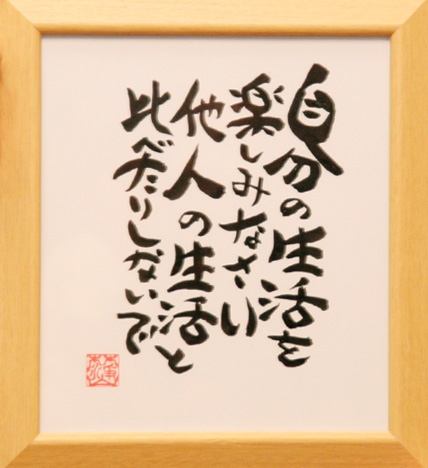 自分の生活を
楽しみなさい
他人の生活と
比べたりしないで